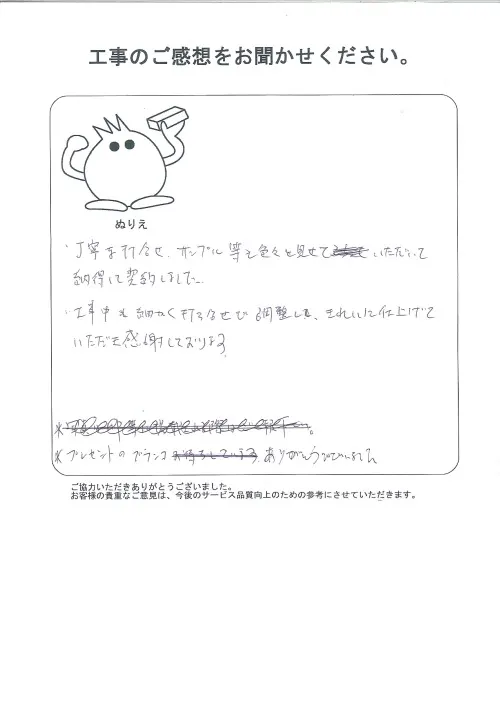 工事のご感想をお聞かせください。
ぬりえ
・丁寧な打合せ、サンプル等を色々と見せて いただいて
納得して契約しました。
・工事中も細かく打ち合せして調整し、きれいに仕上げて
いただき感謝しております
※プレゼントのブランコ ありがとうございました
ご協力いただきありがとうございました。
お客様の貴重なご意見は、今後のサービス品質向上のための参考にさせていただきます。